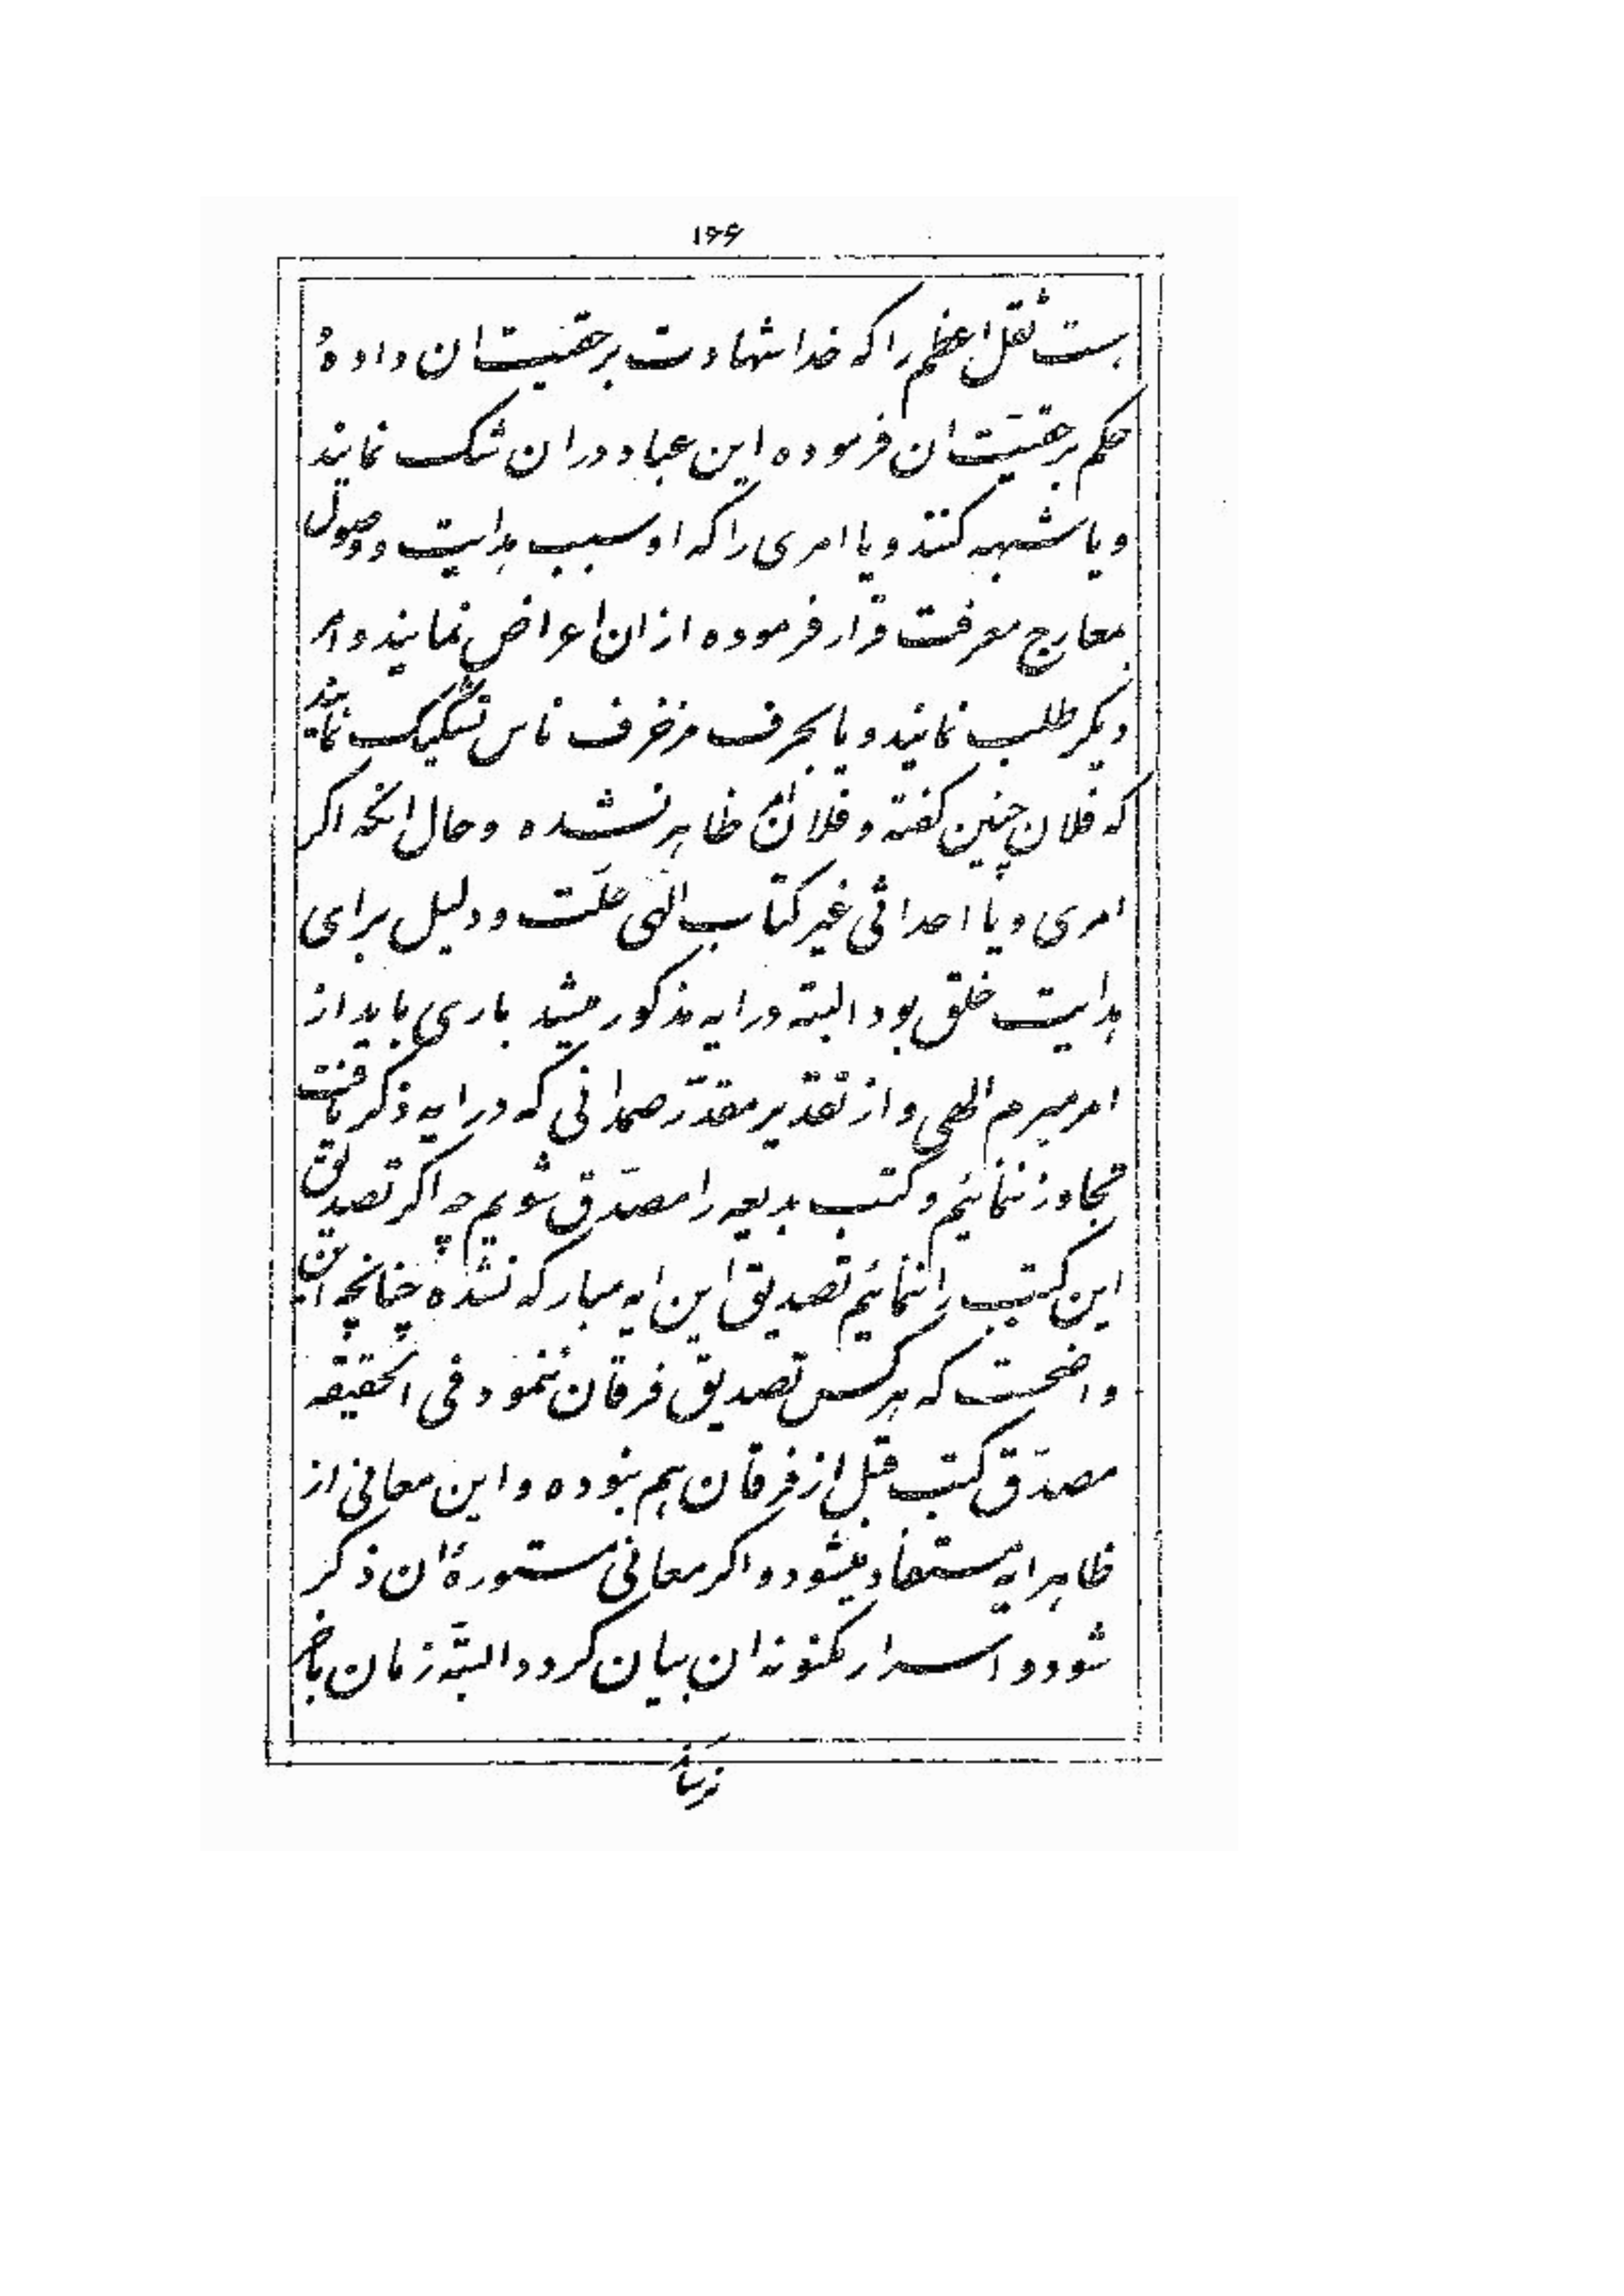 ۱۶۶
ست ثقل اعظم را که خدا شهادت بر حقیّت ان داده و
حکم بر حقیّت ان فرموده این عباد در ان شک نمایند
و یا شبهه کنند و یا امری را که او سبب هدایت و وصول
بمعارج معرفت قرار فرموده از ان اعراض نمایند و امر
دیگر طلب نمایند و یا بحرف مزخرف ناس تشکیک نمایند
که فلان چنین کفته و فلان امر ظاهر نشده و حال انکه اکر
امری و یا احداثی غیر کتاب الهی علّت و دلیل برای
هدایت خلق بود البته در ایه مذکور میشد باری باید از
امر مبرم الهی و از تقدیر مقدّر صمدانی که در ایه ذکر یافت
تجاوز ننمائیم و کتب بدیعه را مصدّق شویم چه اکر تصدیق
این کتب را ننمائیم تصدیق این ایه مبارکه نشده چنانچه این
واضحست که هر کس تصدیق فرقان ننمود فی الحقیقه
مصدّق کتب قبل از فرقان هم نبوده و این معانی از
ظاهر ایه مستفاد میشود و اکر معانی مستورهٔ ان ذکر
شود و اسرار مکنونه ان بیان کردد البتّه زمان باخر
نرساند